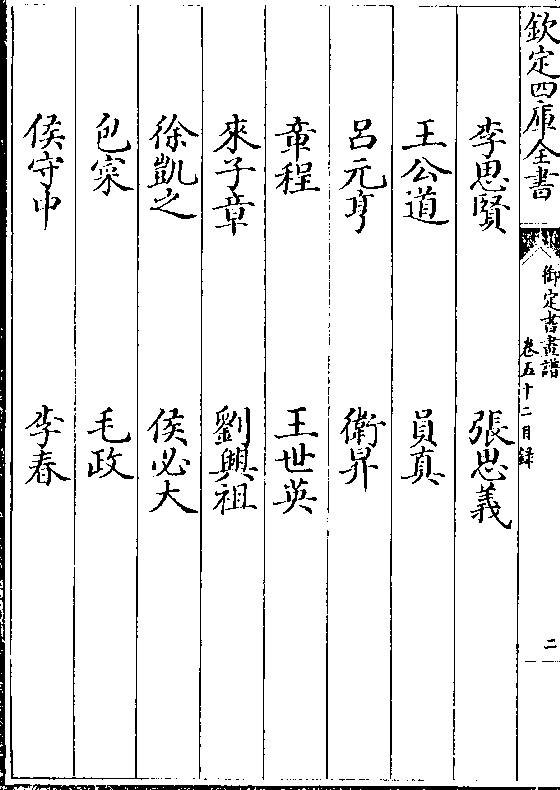 欽定四庫全書
御定書畫譜
卷五十二目錄
二
李思賢 張思義
王公道 員真
呂元亨 衛昇
章程 王世英
來子章 劉興祖
徐凱之 侯必大
包寀 毛政
侯守中 李春